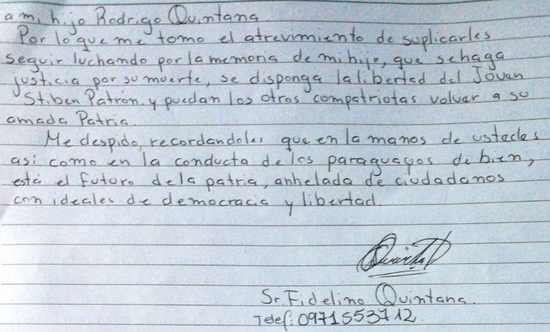 a mi hijo Rodrigo Quintana
Por lo que me tomo el atrevimiento de suplicarles
seguir luchando por la memoria de mi hijo, que se haga
justicia por su muerte, se disponga la libertad del Joven
Stiben Patrón y puedan los otros compatriotas volver a su
amada Patria.
Me despido, recordandoles que en la manos de ustedes
asi como en la conducta de los paraguayos de bien,
está el futuro de la patria, anhelada de ciudadanos
con ideales de democracia y libertad.
Sr. Fidelino Quintana.
Telef: 0971553712